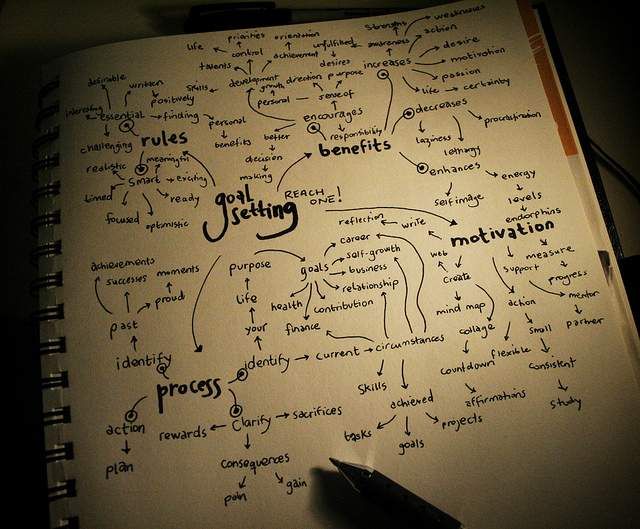 weaknesses
strengths
priorities
orientation
life
control
achievement
unfulfilled
desires
awareness
action
desire
talents
increases
motivation
passion
life → certainty
desirable
written
skills
development
growth
direction
purpose
positively
personal
sense of
interesting
essential → finding
personal
benefits
encourages
decreases
procrastination
challenging
rules
better
decision
making
responsibility
benefits
laziness
lethargy
realistic
meaningful
smart → exciting
timed
ready
focused
optimistic
goal
setting
REACH
ONE!
enhances
energy
self image
levels
endorphins
reflection
write
motivation
career
self-growth
web
measure
achievements
successes
moments
purpose
goals
business
support
progress
relationship
create
past
proud
life
health
contribution
mind map
action
mentor
your
finance
collage
small
partner
identify
identify → current → circumstances
flexible
countdown
consistent
process
skills
affirmations
study
action
achieved
rewards
clarify → sacrifices
projects
tasks
goals
plan
consequences
pain
gain